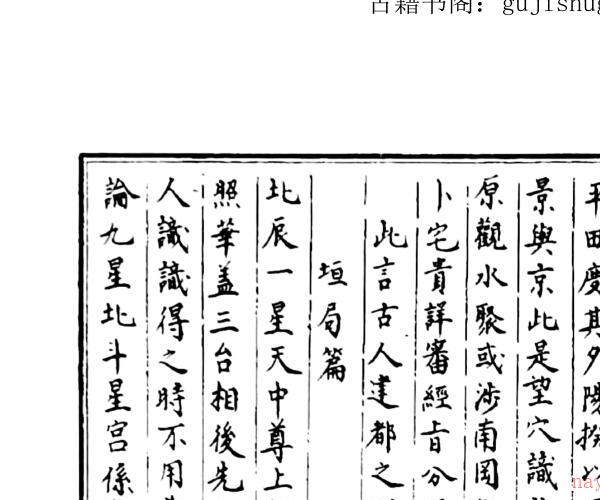 古籍书阁：gujishug
平田慶其外陽揆以
景與京此是望穴識
原觀水聚或涉南岡
卜宅貴詳審經旨分
此言古人建都之
垣局篇
北辰一星天中尊上
照華盖三台相後先
人識識得之時不用
論九星北斗星宫係
nay